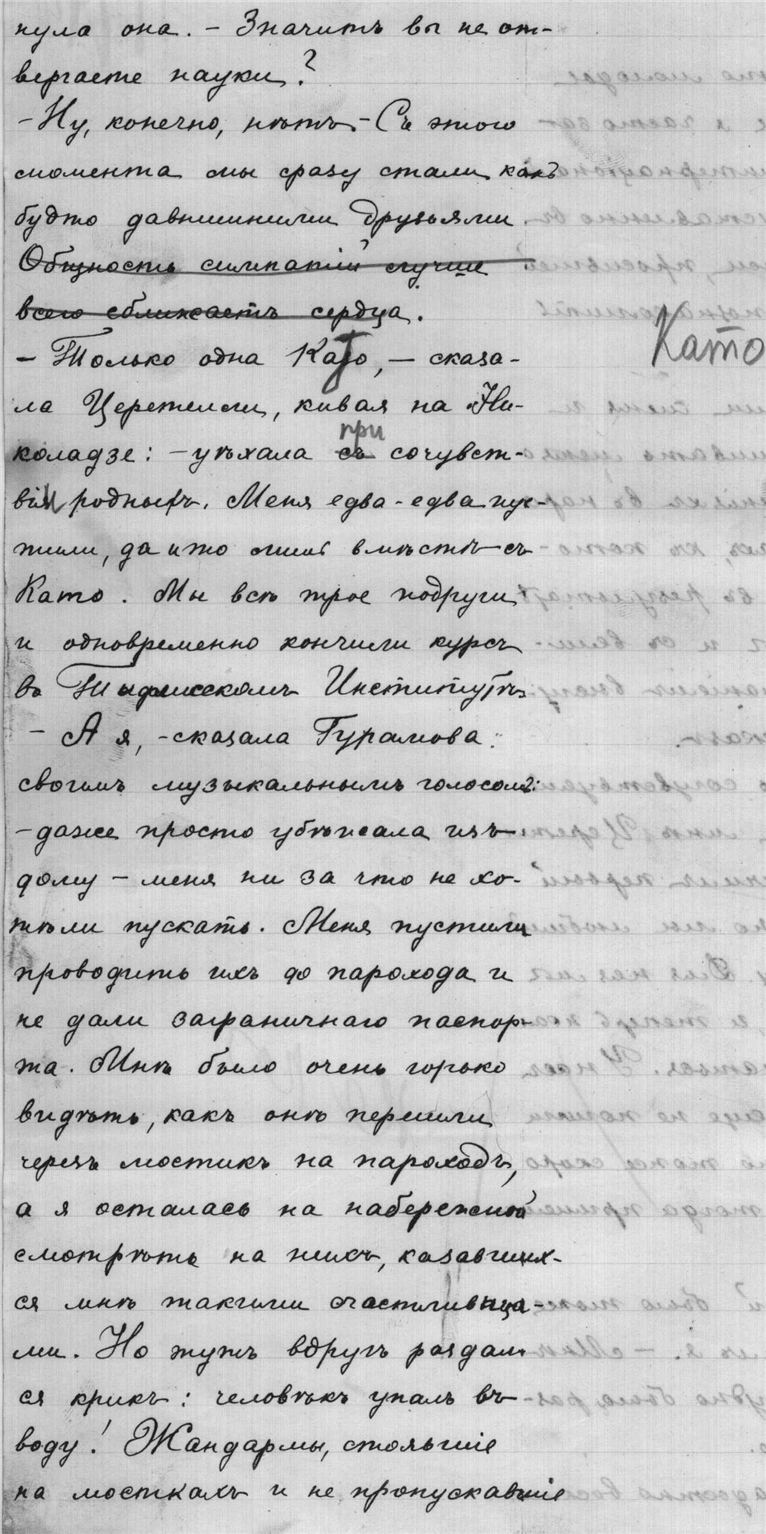 нула она. – Значитъ вы не от-
вергаете науки?
– Ну, конечно, нѣтъ – Съ этого
момента мы сразу стали какъ
будто давнишними друзьями.
Общность симпатій лучше
всего сближаетъ сердца.
– Только одна Като, – сказа-
Като
ла Церетели, кивая на Ни-
коладзе: – уѣхала съ при сочувст-
віи родныхъ. Меня едва-едва пус-
тили, да и то лишь вмѣстѣ съ
Като. Мы всѣ трое подруги
и одновременно кончили курсъ
въ Тифлисскомъ Институтѣ.
– А я, – сказала Гурамова
своимъ музыкальнымъ голосомъ:
– даже просто убѣжала изъ
дому – меня ни за что не хо-
тѣли пускать. Меня пустили
проводить ихъ до парохода и
не дали заграничнаго паспор-
та. Мнѣ было очень горько
видѣть, какъ онѣ перешли
черезъ мостикъ на пароходъ,
а я осталась на набережной
смотрѣть на нихъ, казавших-
ся мнѣ такими счастливица-
ми. Но тутъ вдругъ раздал-
ся крикъ: человѣкъ упалъ въ
воду! Жандармы, стоявшіе
на мосткахъ и не пропускавшіе